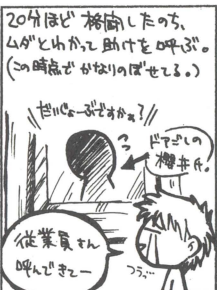 20分ほど 格闘したのち、
ムダとわかって助けを呼ぶ。
(この時点でかなりのぼせてる。)
だいじょーぶですかぁ?
ドアごしの
櫻井氏。
従業員さん
呼んできてー
つうっ…